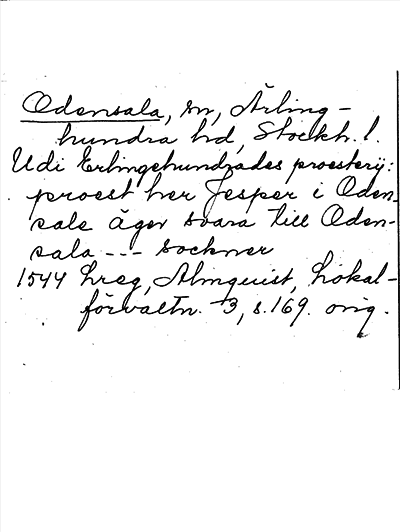 Odensala, sn, Ärling-
hundra hd, Stockh. l.
Udi Erlingehundrades proesterij:
proest her Jesper i Oden-
sale äger svara till Oden-
sala --- sockner
1544 hreg, Almquist, Lokal-
förvaltn. 3, s. 169. orig.